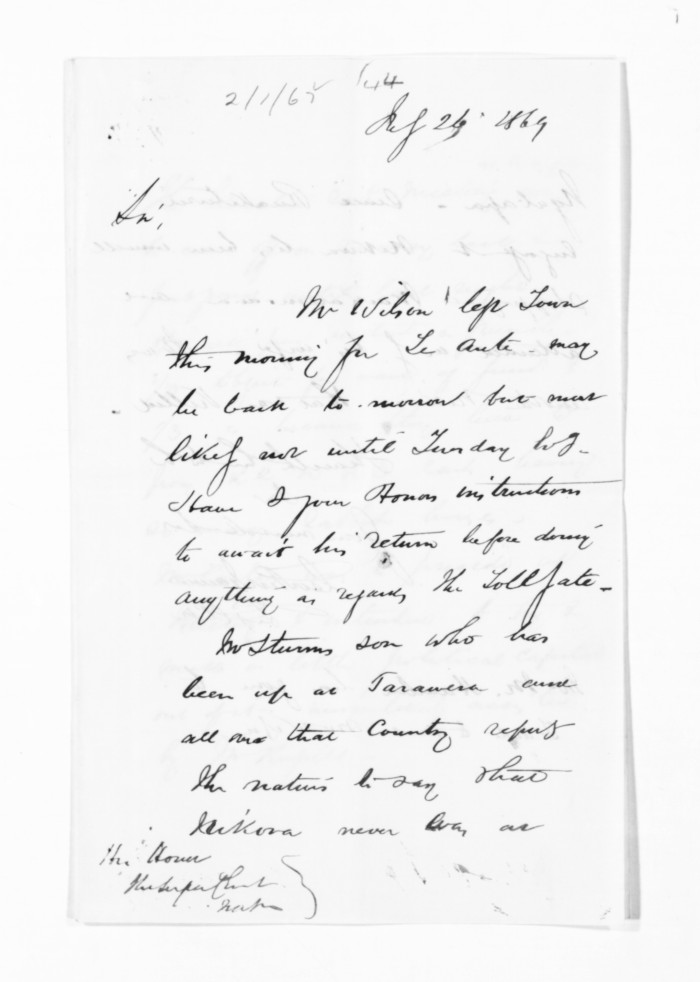 2/1/65
144
July 26 1869
Sir,
Mr Wilson left Town
this morning for Te Aute - may
be back to-morrow but most
likely not until Tuesday
Have I your Honors instructions
to await his return before doing
anything as regards the Toll Gate -
Mr Sturms son who has
been up at Tarawera and
all over that Country reports
the natives to say that
Nikora never was at
His Honor
The Superintendent
Napier